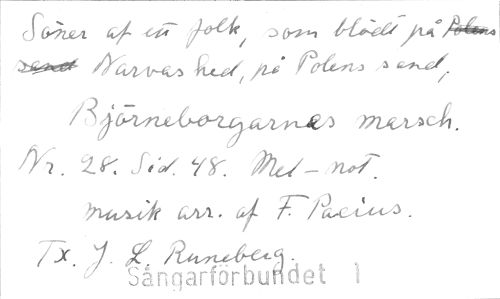 Söner af ett folk, som blödt på Polens
sand Narvas hed, på Polens sand,
Björneborgarnas marsch.
Nr. 28. Sid. 48. Mel-not.
musik arr. af F. Pacius.
Tx. J. L. Runeberg.
Sångarförbundet 1